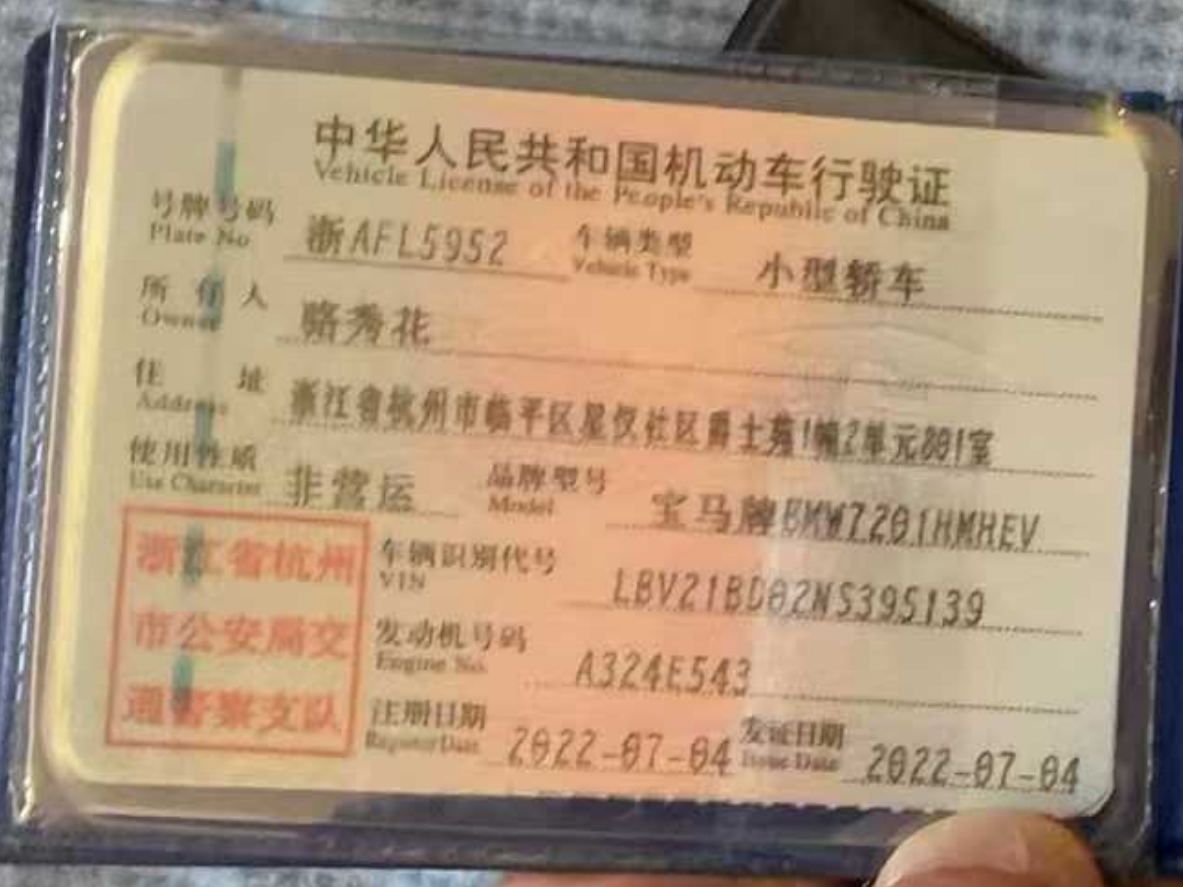 中华人民共和国机动车行驶证
Vehicle License of the People's Republic of China
号牌号码 浙AFL5952 车辆类型 小型轿车
Plate No. Vehicle Type
所有人 骆秀花
Owner
住址 浙江省杭州市临平区星仪社区爵士苑1幢2单元801室
Address
使用性质 非营运 品牌型号 宝马牌BMW7201HMHEV
Use Character Model
浙江省杭州
市公安局交
通警察支队
车辆识别代号 LBV21BD02NS395139
VIN
发动机号码 A324E543
Engine No.
注册日期 2022-07-04 发证日期 2022-07-04
Register Date Issue Date